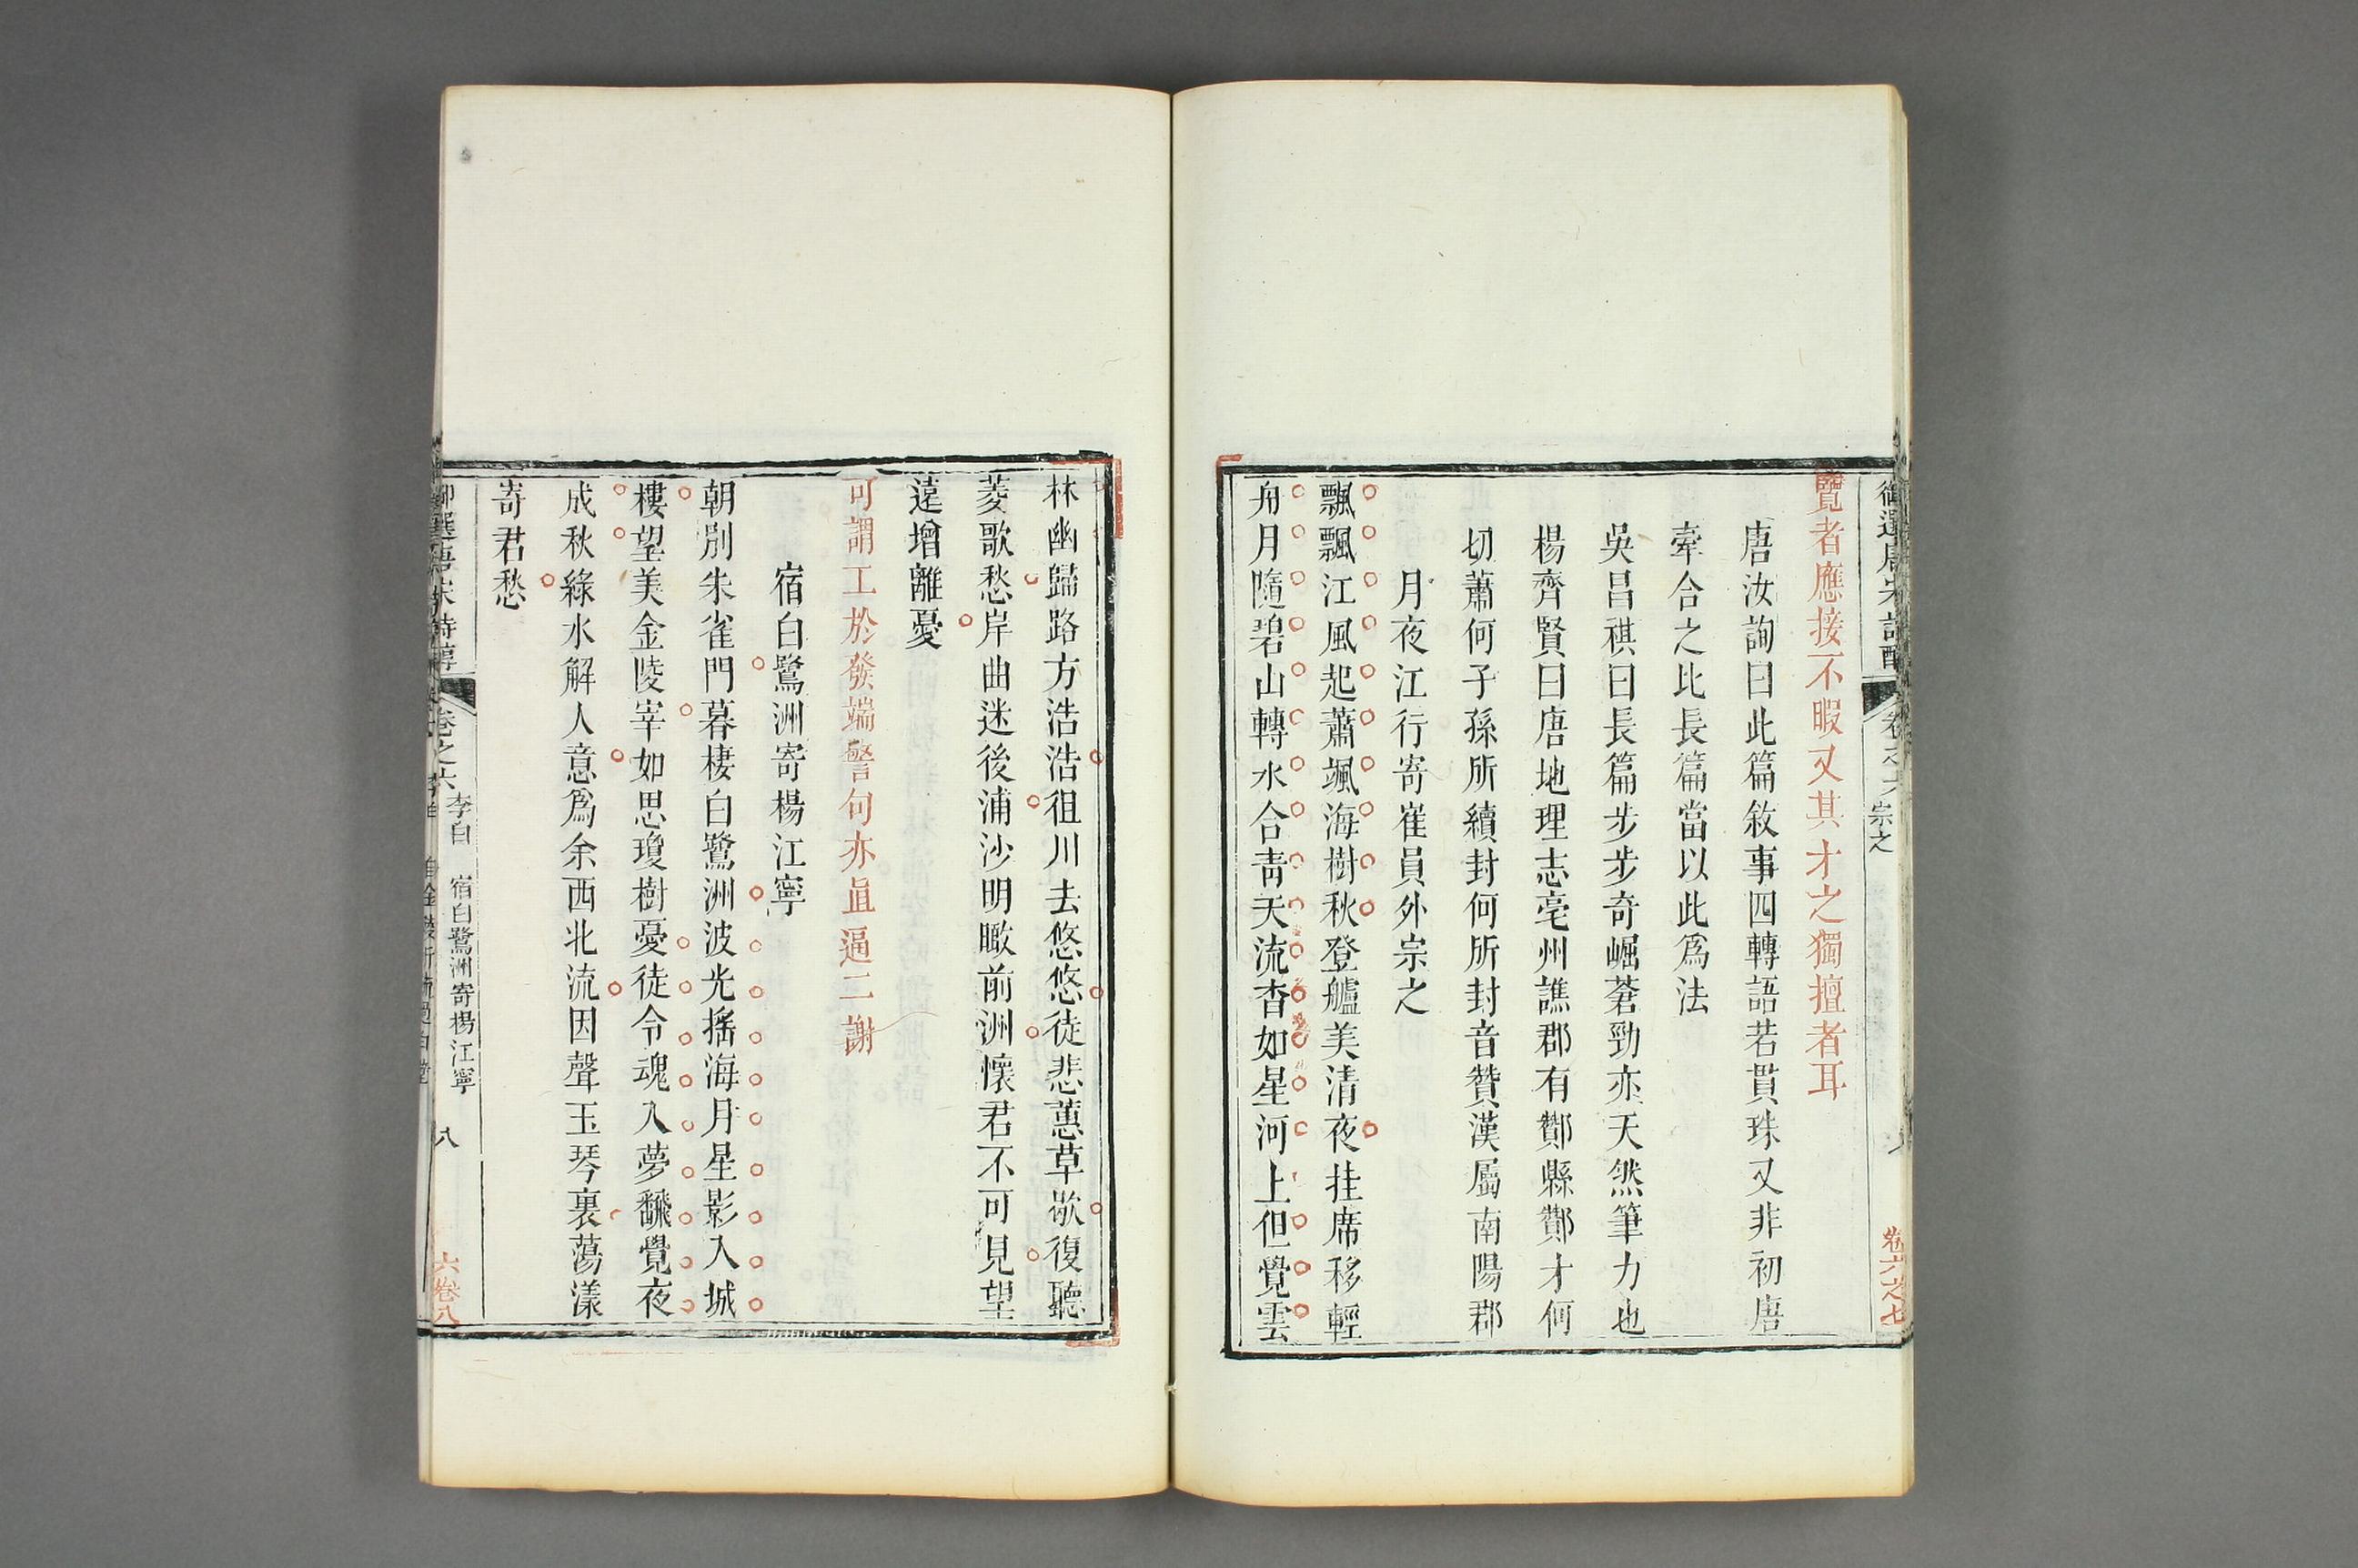 覽者應接不暇又其才之獨擅者耳
唐汝詢曰此篇敘事四轉語若貫珠又非初唐
牽合之比長篇當以此爲法
吳昌祺曰長篇步步奇崛蒼勁亦天然筆力也
楊齊賢曰唐地理志亳州譙郡有酇縣酇才何
切蕭何子孫所續封何所封音贊漢屬南陽郡
月夜江行寄崔員外宗之
飄飄江風起蕭颯海樹秋登艫美清夜挂席移輕
舟月隨碧山轉水合青天流杳如星河上但覺雲
卷六之七
林幽歸路方浩浩徂川去悠悠徒悲蕙草歇復聽
菱歌愁岸曲迷後浦沙明瞰前洲懷君不可見望
遠增離憂
可謂工於發端警句亦直逼二謝
宿白鷺洲寄楊江寧
朝別朱雀門暮棲白鷺洲波光搖海月星影入城
樓望美金陵宰如思瓊樹憂徒令魂入夢飜覺夜
成秋綠水解人意爲余西北流因聲玉琴裏蕩漾
寄君愁
卷之六 李白 宿白鷺洲寄楊江寧 八
六卷八